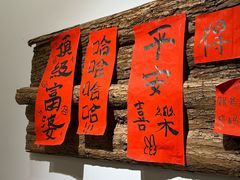 頂級富婆
哈哈哈哈!!!
平安喜樂
得